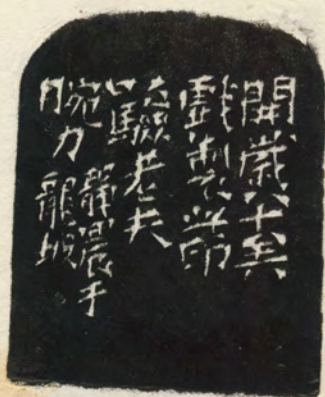 開歲八十矣
戲製此印
一驗老夫
腕力 靜農手
龍坡